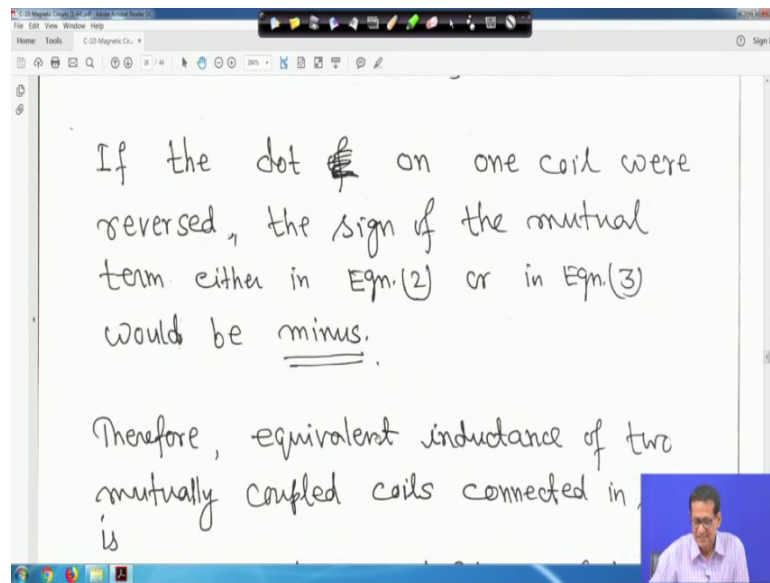 C-10-Magnetic Circuits (1-44).pdf - Adobe Acrobat Reader DC
File Edit View Window Help
Home Tools C-10-Magnetic Cir... × Sign
26 / 44 200%
If the dot on one coil were
reversed, the sign of the mutual
term either in Eqn.(2) or in Eqn.(3)
would be minus.
Therefore, equivalent inductance of two
mutually coupled coils connected in
is